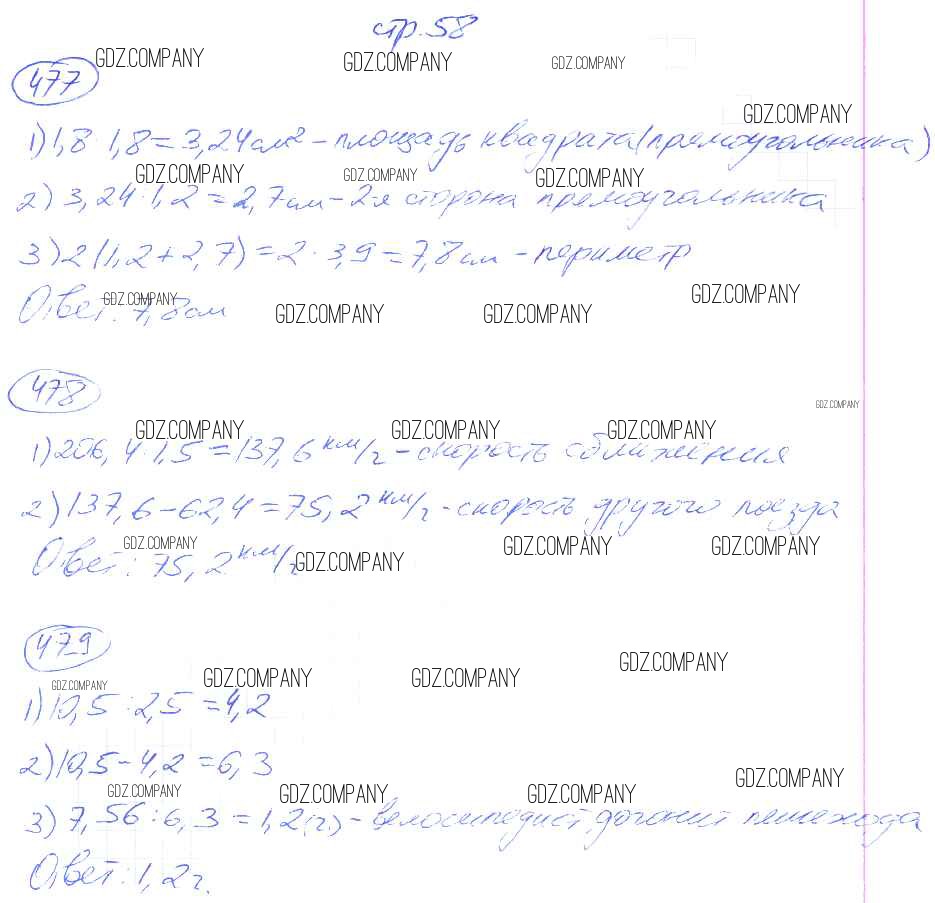 стр. 58
GDZ.COMPANY GDZ.COMPANY GDZ.COMPANY
477
GDZ.COMPANY
1) 1,8 1,8 = 3,24 см² – площадь квадрата (прямоугольника)
GDZ.COMPANY GDZ.COMPANY GDZ.COMPANY
2) 3,24 : 1,2 = 2,7 см – 2-я сторона прямоугольника
3) 2(1,2 + 2,7) = 2 · 3,9 = 7,8 см – периметр
GDZ.COMPANY GDZ.COMPANY
Ответ: 7,8 см
GDZ.COMPANY GDZ.COMPANY
478
GDZ.COMPANY
GDZ.COMPANY GDZ.COMPANY GDZ.COMPANY
1) 206,4 : 1,5 = 137,6 км/ч – скорость сближения
2) 137,6 – 62,4 = 75,2 км/ч – скорость другого поезда
GDZ.COMPANY GDZ.COMPANY GDZ.COMPANY
Ответ: 75,2 км/ч
GDZ.COMPANY
479
GDZ.COMPANY
GDZ.COMPANY GDZ.COMPANY GDZ.COMPANY
1) 10,5 : 2,5 = 4,2
2) 10,5 – 4,2 = 6,3
GDZ.COMPANY
GDZ.COMPANY GDZ.COMPANY GDZ.COMPANY
3) 7,56 : 6,3 = 1,2 (ч.) – велосипедист догонит пешехода
Ответ: 1,2 ч.